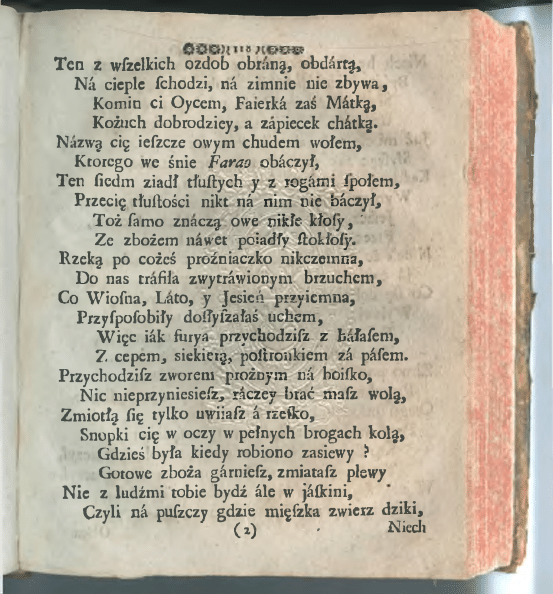 )( 118 )(
Ten z wſzelkich ozdob obráną, obdártą,
Ná cieple ſchodzi, ná zimnie nie zbywa,
Komin ci Oycem, Faierká zaś Mátką,
Kożuch dobrodziey, a zápiecek chátką.
Názwą cię ieszcze owym chudem wołem,
Ktorego we śnie Farao obáczył,
Ten ſiedm ziadł tłuſtych y z rogámi ſpołem,
Przecię tłuſtości nikt ná nim nie báczył,
Toż ſamo znáczą owe nikłe kłoſy,
Ze zbożem náwet poiadły ſtokłoſy.
Rzeką po cożeś proźniaczko nikczemna,
Do nas tráfiła zwytráwionym brzuchem,
Co Wioſna, Láto, y Jesień przyiemna,
Przyſpoſobiły doſłyszałaś uchem,
Więc iák furya przychodziſz z háłaſem,
Z cepem, siekierą, poſtronkiem zá páſem.
Przychodziſz zworem prożnym ná boiſko,
Nic nieprzyniesieſz, ráczey brać maſz wolą,
Zmiotłą ſię tylko uwiiaſz á rzeſko,
Snopki cię w oczy w pełnych brogach kolą,
Gdzieś była kiedy robiono zasiewy ?
Gotowe zboża gárnieſz, zmiataſz plewy
Nie z ludźmi tobie bydź ále w jáſkini,
Czyli ná puſzczy gdzie mięſzka zwierz dziki,
(2) Niech